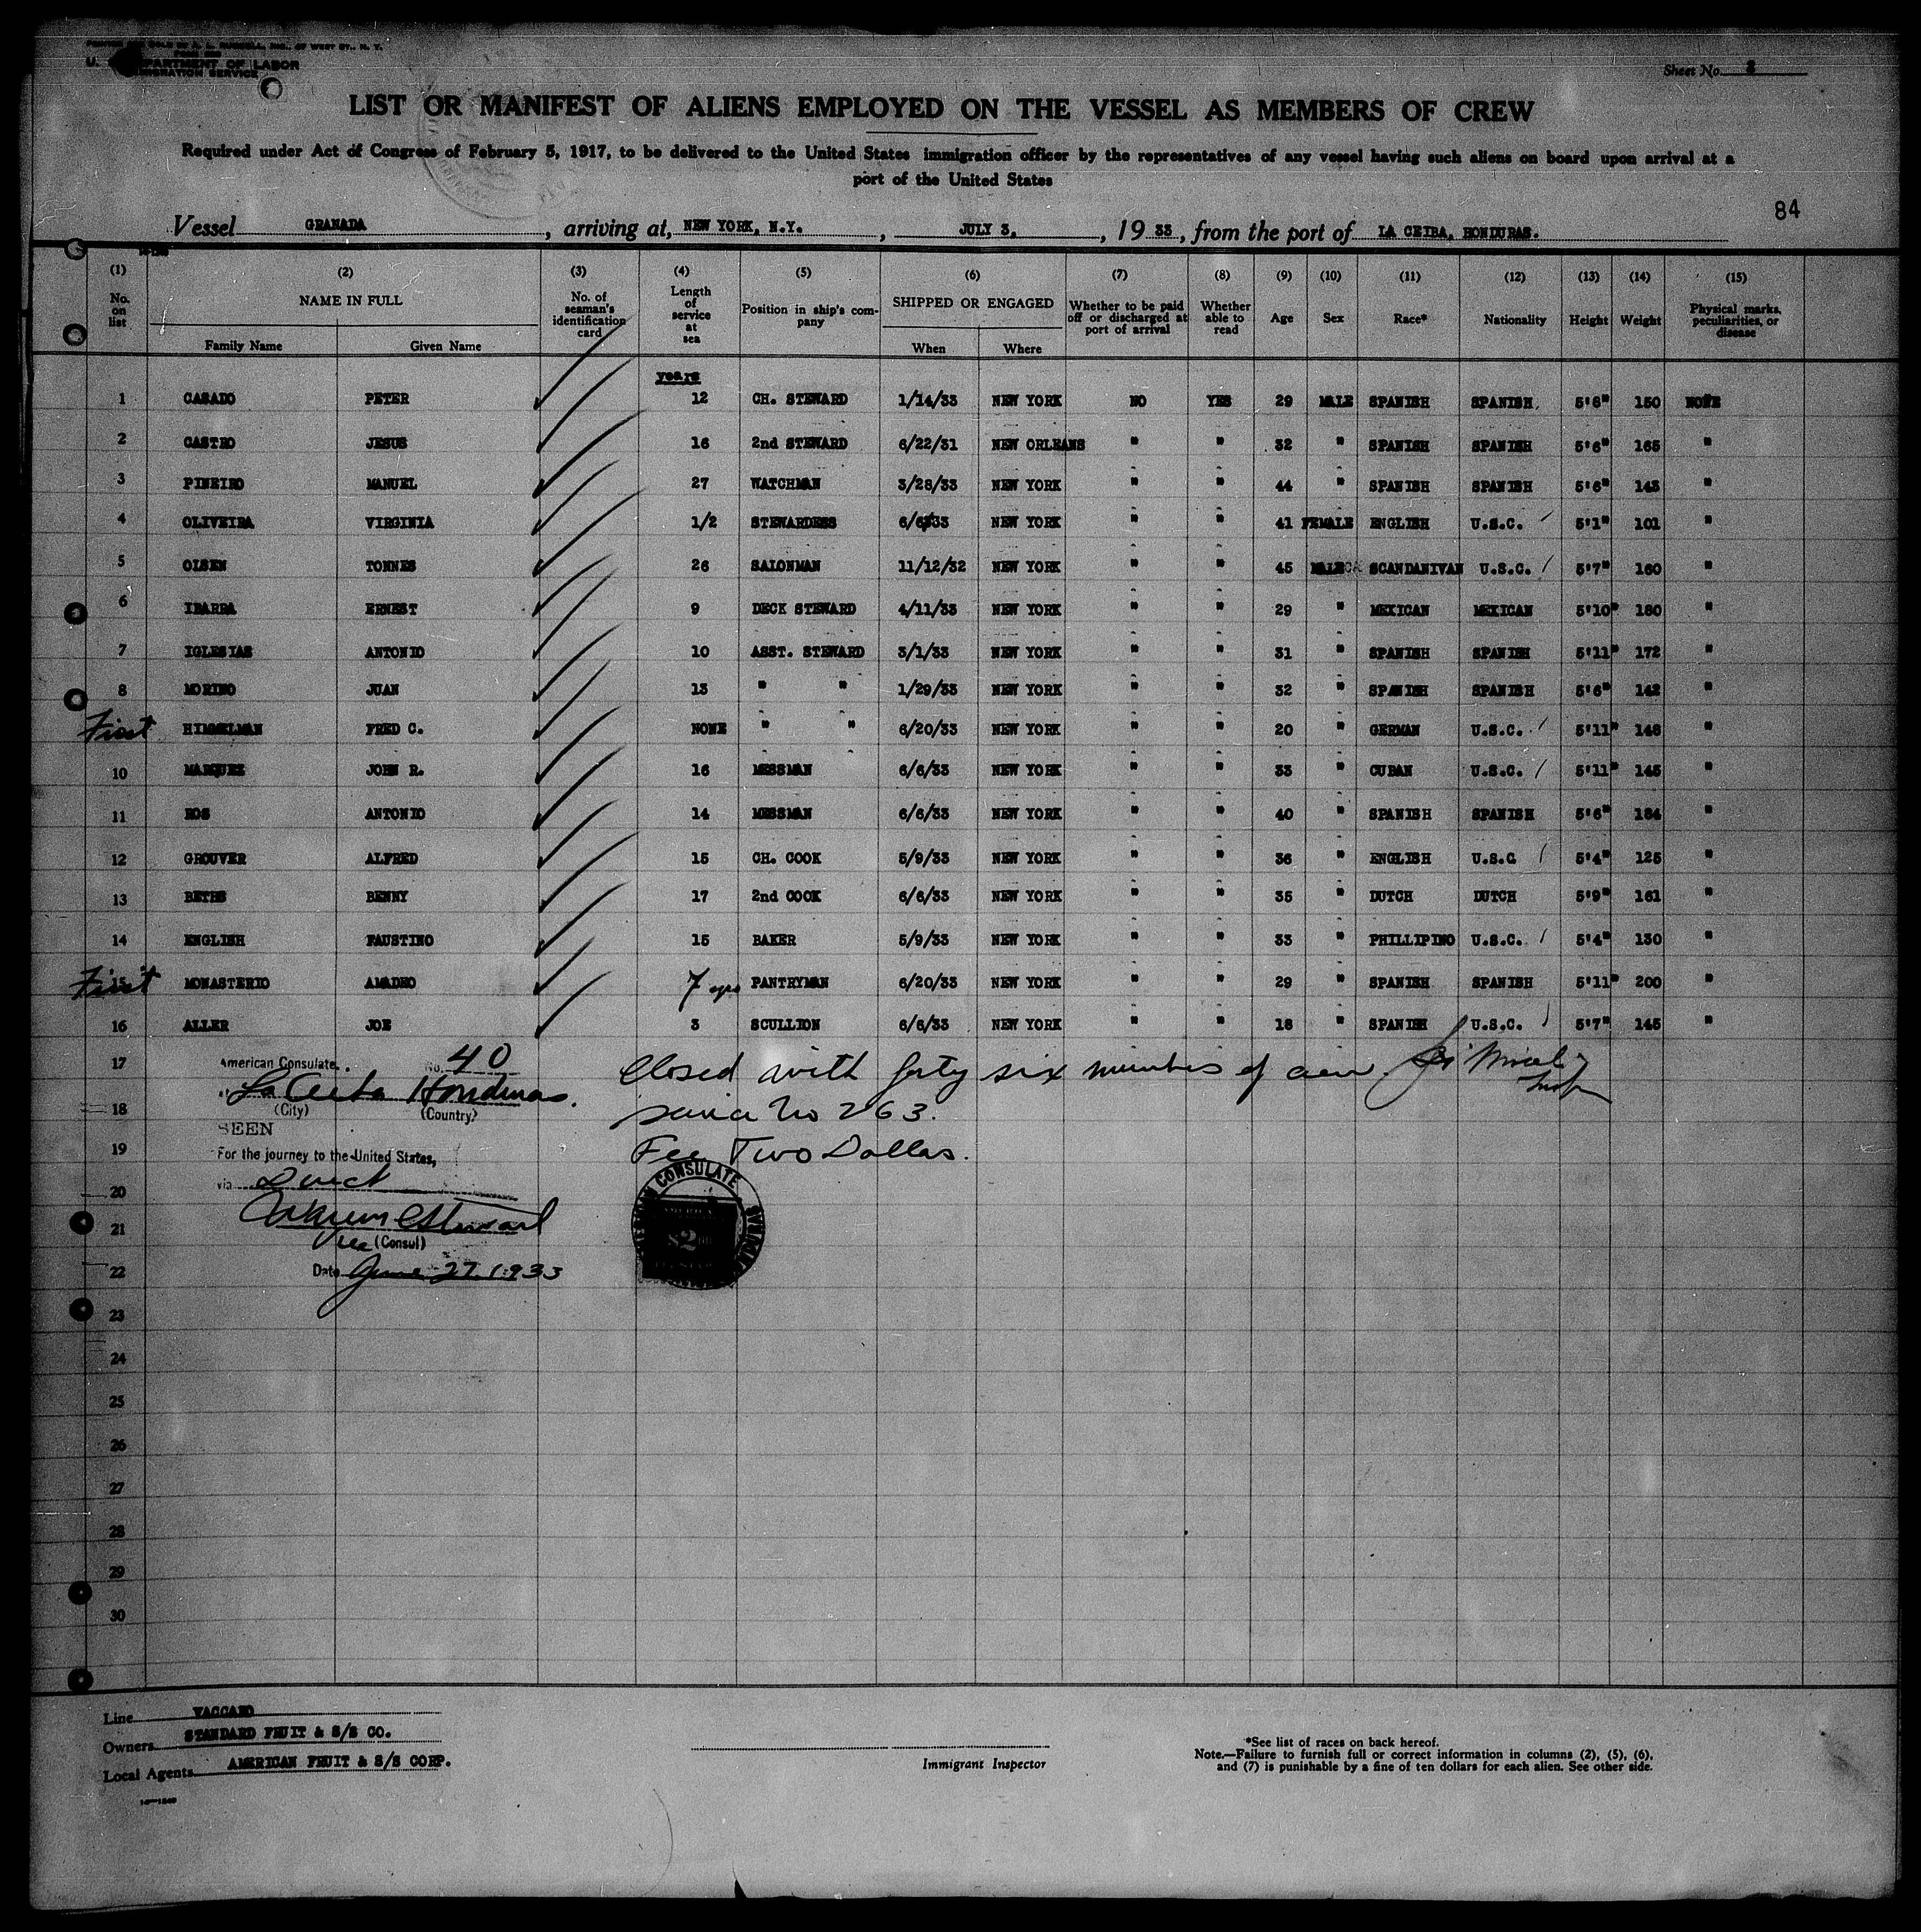 DEPARTMENT OF LABOR
IMMIGRATION SERVICE
Sheet No.
LIST OR MANIFEST OF ALIENS EMPLOYED ON THE VESSEL AS MEMBERS OF CREW
Required under Act of Congress of February 5, 1917, to be delivered to the United States immigration officer by the representatives of any vessel having such aliens on board upon arrival at a
port of the United States
84
Vessel GRANADA, arriving at, NEW YORK, N.Y., JULY 3, 1933, from the port of LA CEIBA, HONDURAS.
(1) (2) (3) (4) (5) (6) (7) (8) (9) (10) (11) (12) (13) (14) (15)
No. on list NAME IN FULL Family Name Given Name No. of seaman's identification card Length of service at sea Position in ship's company SHIPPED OR ENGAGED When Where Whether to be paid off or discharged at port of arrival Whether able to read Age Sex Race* Nationality Height Weight Physical marks, peculiarities, or disease
years
1 CASADO PETER 12 CH. STEWARD 1/14/33 NEW YORK NO YES 29 MALE SPANISH SPANISH 5'6" 150 NONE
2 CASTRO JESUS 16 2nd STEWARD 6/22/31 NEW ORLEANS " " 32 " SPANISH SPANISH 5'6" 165 "
3 PINEIRO MANUEL 27 WATCHMAN 3/28/33 NEW YORK " " 44 " SPANISH SPANISH 5'6" 143 "
4 OLIVEIRA VIRGINIA 1/2 STEWARDESS 6/6/33 NEW YORK " " 41 FEMALE ENGLISH U.S.C. 5'1" 101 "
5 OLSEN TONNES 26 SALONMAN 11/12/32 NEW YORK " " 45 MALE SCANDANIVAN U.S.C. 5'7" 160 "
6 IBARRA ERNEST 9 DECK STEWARD 4/11/33 NEW YORK " " 29 " MEXICAN MEXICAN 5'10" 180 "
7 IGLESIAS ANTONIO 10 ASST. STEWARD 3/1/33 NEW YORK " " 31 " SPANISH SPANISH 5'11" 172 "
8 MORINO JUAN 13 " " 1/29/33 NEW YORK " " 32 " SPANISH SPANISH 5'6" 142 "
First HIMMELMAN FRED C. NONE " " 6/20/33 NEW YORK " " 20 " GERMAN U.S.C. 5'11" 148 "
10 MARQUEZ JOHN R. 16 MESSMAN 6/6/33 NEW YORK " " 33 " CUBAN U.S.C. 5'11" 145 "
11 ROS ANTONIO 14 MESSMAN 6/6/33 NEW YORK " " 40 " SPANISH SPANISH 5'6" 184 "
12 GROUVER ALFRED 15 CH. COOK 5/9/33 NEW YORK " " 36 " ENGLISH U.S.C 5'4" 125 "
13 BETHS BENNY 17 2nd COOK 6/6/33 NEW YORK " " 35 " DUTCH DUTCH 5'9" 161 "
14 ENGLISH FAUSTINO 15 BAKER 5/9/33 NEW YORK " " 33 " PHILLIPINO U.S.C. 5'4" 130 "
First 15 MONASTERIO AMADEO 7 yrs PANTRYMAN 6/20/33 NEW YORK " " 29 " SPANISH SPANISH 5'11" 200 "
16 ALLER JOE 3 SCULLION 6/6/33 NEW YORK " " 18 " SPANISH U.S.C. 5'7" 145 "
17
American Consulate. No. 40
La Ceiba Honduras.
(City) (Country)
18
SEEN
19
For the journey to the United States,
via Direct
20
21
Vice (Consul)
22
Date June 27, 1933
Closed with forty six members of crew.
Service No 263.
Fee Two Dollars.
CONSULATE
$2
23
24
25
26
27
28
29
30
Line VACCARO
Owners STANDARD FRUIT & S/S CO.
Local Agents AMERICAN FRUIT & S/S CORP.
Immigrant Inspector
*See list of races on back hereof.
Note.—Failure to furnish full or correct information in columns (2), (5), (6),
and (7) is punishable by a fine of ten dollars for each alien. See other side.